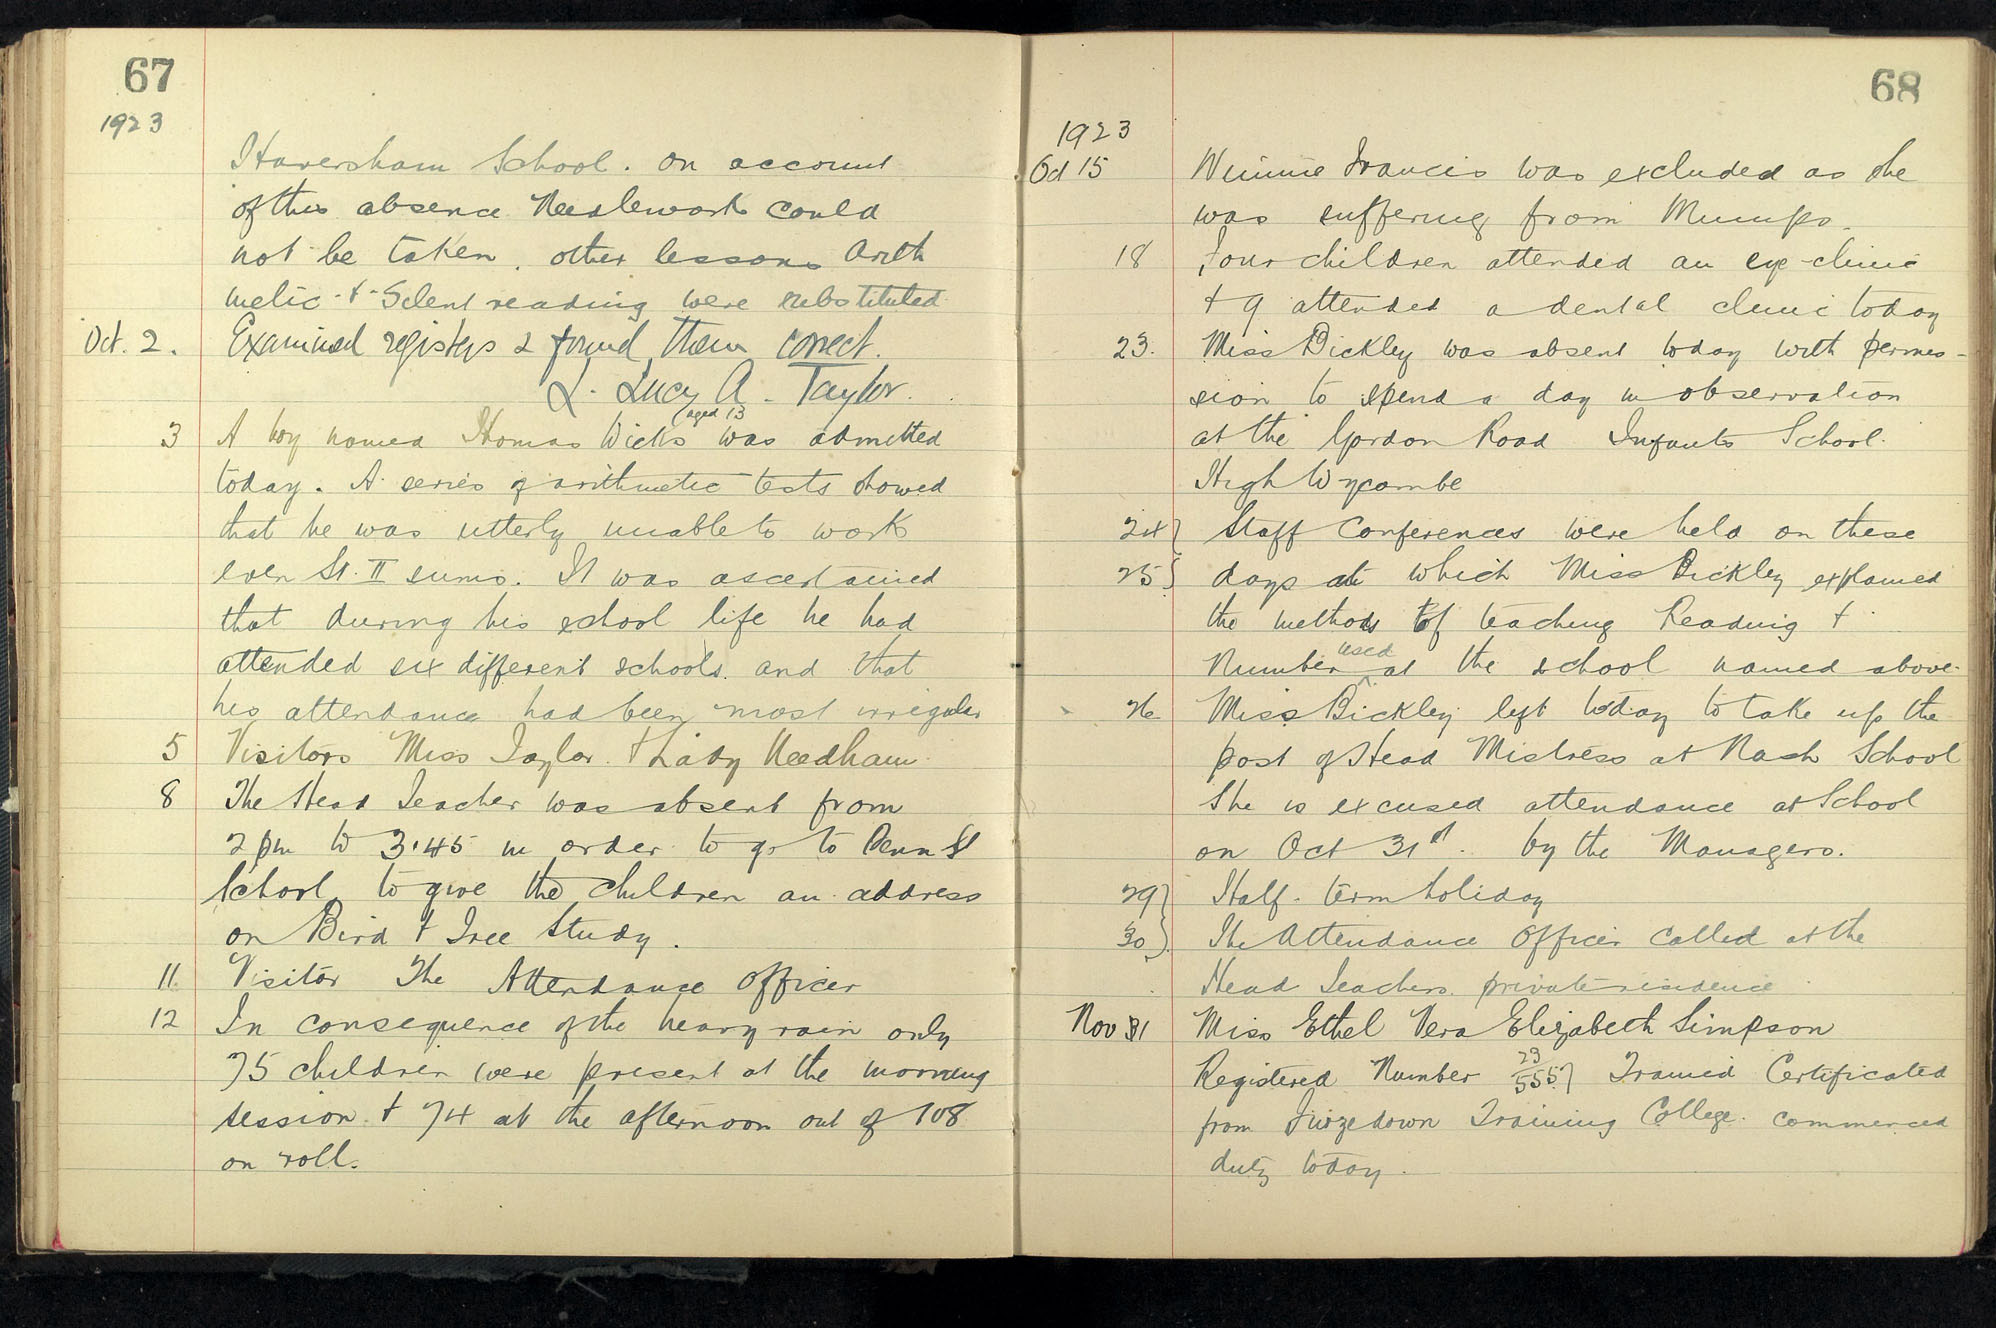 67
1923
Haversham School. On account
of this absence Needlework could
not be taken, other lessons Arith
metic & Silent reading were substituted
Oct. 2. Examined registers & found them correct.
L. Lucy A. Taylor.
(aged 13
3 A boy named Thomas Wicks was admitted
today. A series of arithmetic tests showed
that he was utterly unable to work
even St. II sums. It was ascertained
that during his school life he had
attended six different schools and that
his attendance had been most irregular
5 Visitors Miss Taylor & Lady Needham
8 The Head Teacher was absent from
2 pm to 3.45 in order to go to Penn St
School to give the children an address
on Bird & Tree Study.
11 Visitor The Attendance Officer
12 In consequence of the heavy rain only
75 children were present at the morning
session & 74 at the afternoon out of 108
on roll.
68
1923
Oct 15 Winnie Francis was excluded as she
was suffering from Mumps.
18 Four children attended an eye-clinic
& 9 attended a dental clinic today
23. Miss Bickley was absent today with permis-
sion to spend a day in observation
at the Gordon Road Infants School.
High Wycombe
24} Staff Conferences were held on these
25} days at which Miss Bickley explained
the methods of teaching Reading &
used
Number at the school named above.
26 Miss Bickley left today to take up the
post of Head Mistress at Nash School
She is excused attendance at School
on Oct 31st. by the Managers.
29} Half-term holiday
30} The Attendance Officer called at the
Head Teachers private residence
Nov 1 Miss Ethel Vera Elizabeth Simpson
Registered Number 23/5557 Trained Certificated
from Furzedown Training College. commenced
duty today.